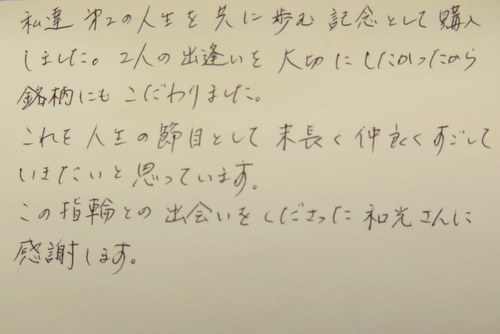 私達 第2の人生を共に歩む記念として購入
しました。2人の出逢いを大切にしたかったから
銘柄にもこだわりました。
これを人生の節目として末長く仲良くすごして
いきたいと思っています。
この指輪との出会いをくださった和光さんに
感謝します。